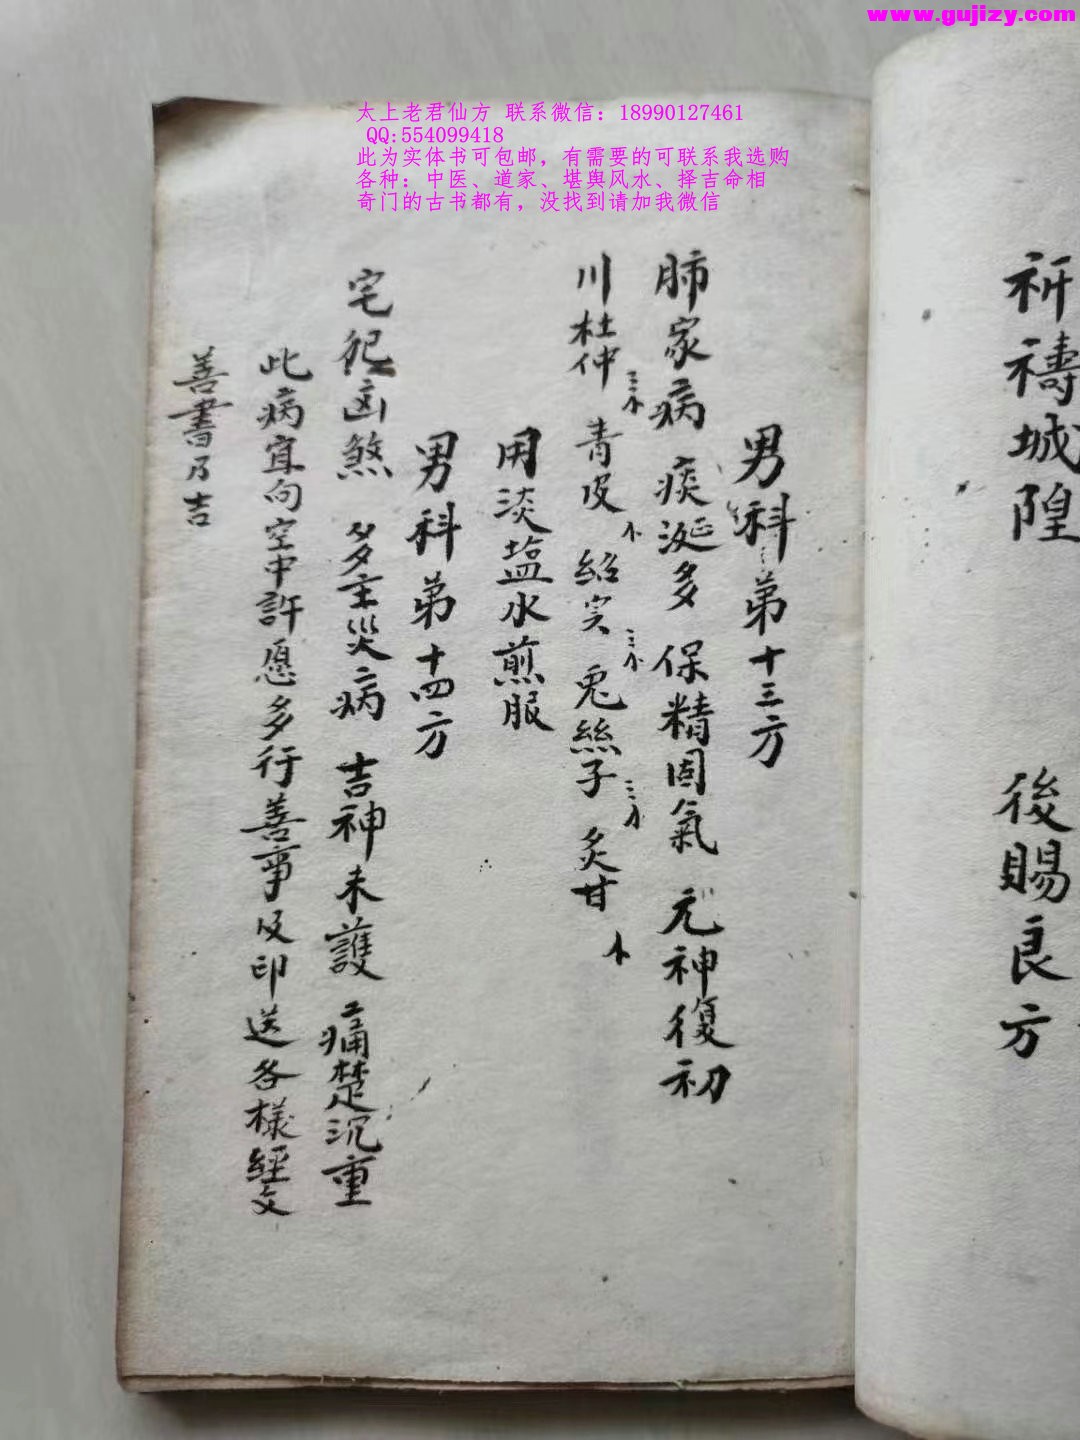 www.gujizy.com
太上老君仙方 联系微信：18990127461
QQ:554099418
此为实体书可包邮，有需要的可联系我选购
各种：中医、道家、堪舆风水、择吉命相
奇门的古书都有，没找到请加我微信
祈禱城隍 後賜良方
男科第十三方
肺家病 痰涎多 保精固氣 元神復初
川杜仲 青皮 兎絲子 炙甘
用淡塩水煎服
男科第十四方
宅犯凶煞 多主災病 吉神未護 痛楚沉重
此病宜向空中許愿多行善事及印送各樣經文
善書乃吉